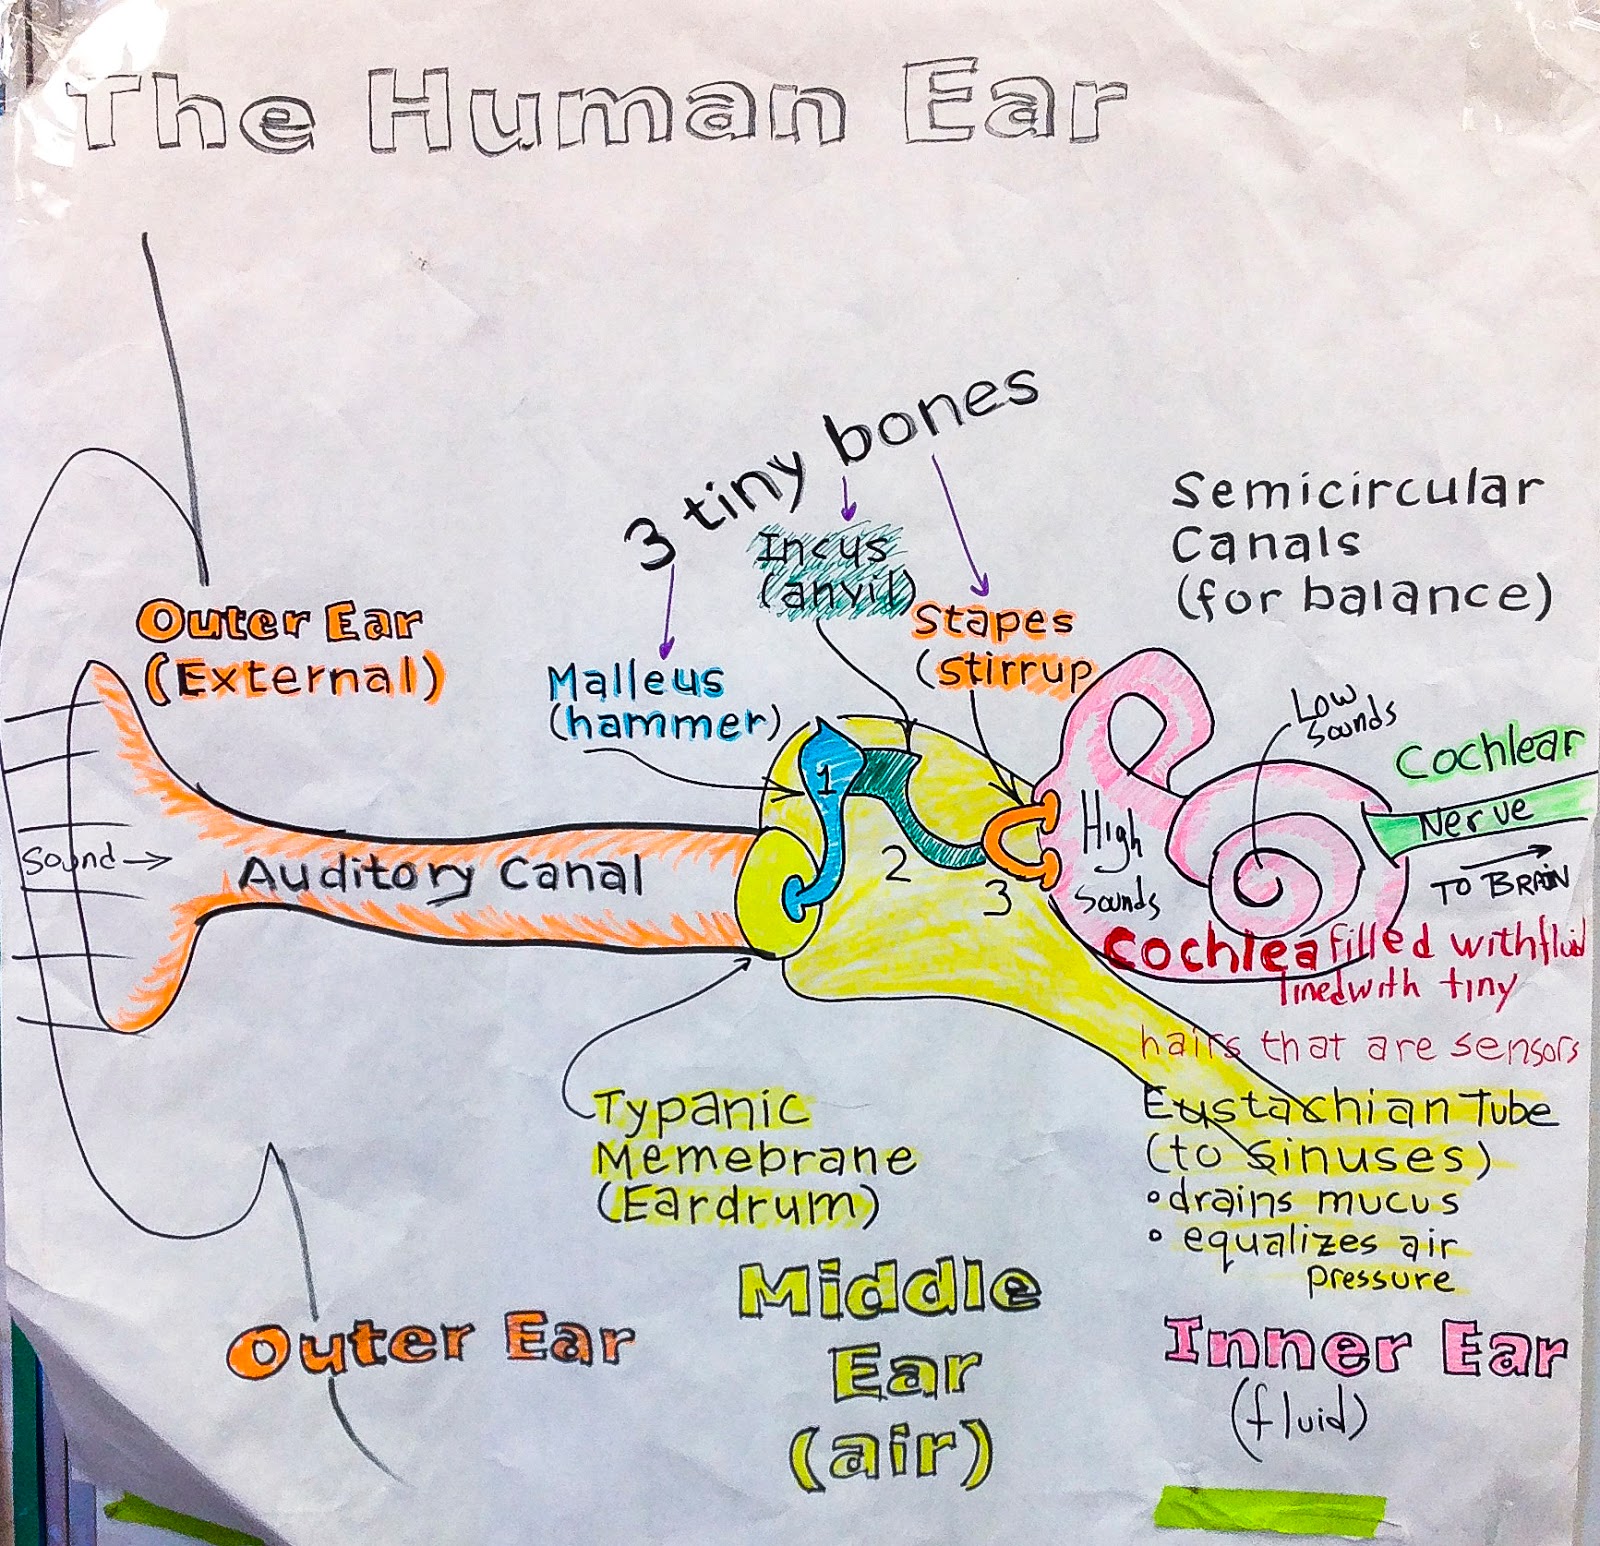 The Human Ear
3 tiny bones
Incus
(anyil)
Semicircular
Canals
(for balance)
Outer Ear
(External)
Stapes
(stirrup
Malleus
(hammer)
Low
Sounds
Cochlear
Nerve
1
High
Sounds
2
3
Sound
Auditory Canal
TO BRAIN
Cochlea filled with fluid
lined with tiny
hairs that are sensors
Typanic
Memebrane
(Eardrum)
Eustachian Tube
(to Sinuses)
drains mucus
equalizes air
pressure
Outer Ear
Middle
Ear
(air)
Inner Ear
(fluid)